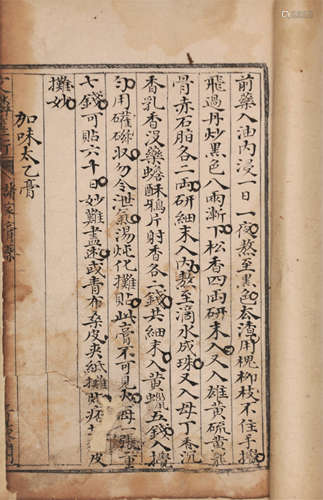 前藥入油内浸一日一夜熬至黑色去渣用槐柳枝不住手攪
飛過丹炒黑色八兩漸下松香四兩研末入雄黃硫黃龍
骨赤石脂各二兩研細末入内熬至滴水成珠又入母丁香沉
香乳香没藥蟾酥鴉片射香各二錢共細末入黃蠟五錢入攪
勻用礶磁收勿令泄氣湯炖化攤貼此膏不可見火每一張重
七錢可貼六十日妙難盡述或青布桑皮夾紙攤貼痞
皮
攤妙
加味太乙膏